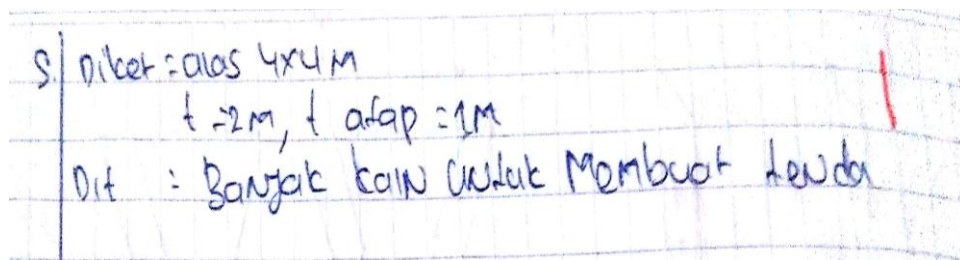 5. Diket = alas 4x4 M
t = 2m, t atap = 1M
Dit : Banyak kain untuk Membuat tenda